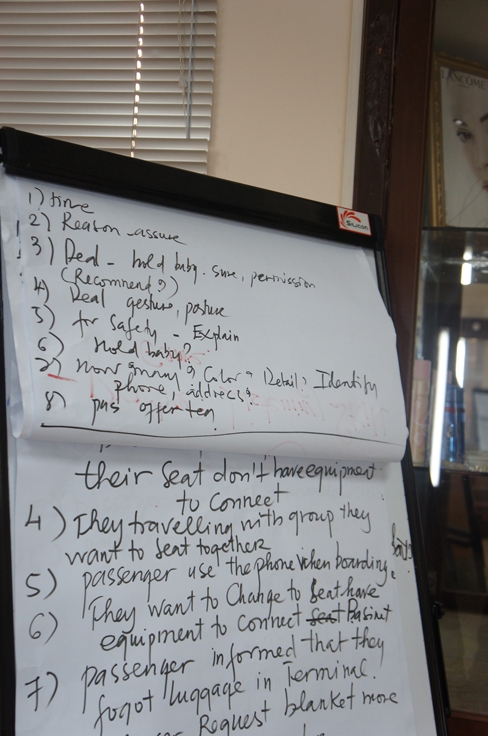 LANCOME
Silicon
1) time
2) Reason - assure
3) Deal - hold baby. sure, permission
(Recommend?)
4) Deal gesture, posture
5) for Safety - Explain
6) Hold baby?
7) How many? Color? Detail? Identify
phone, address?
8) pas offer tea
their Seat don't have equipment
to Connect
4) They travelling with group they
want to Seat together
5) passenger use the phone when boarding.
6) They want to Change to Seat have
equipment to connect Basinet
7) passenger informed that they
fogot luggage in Terminal.
Request blanket more